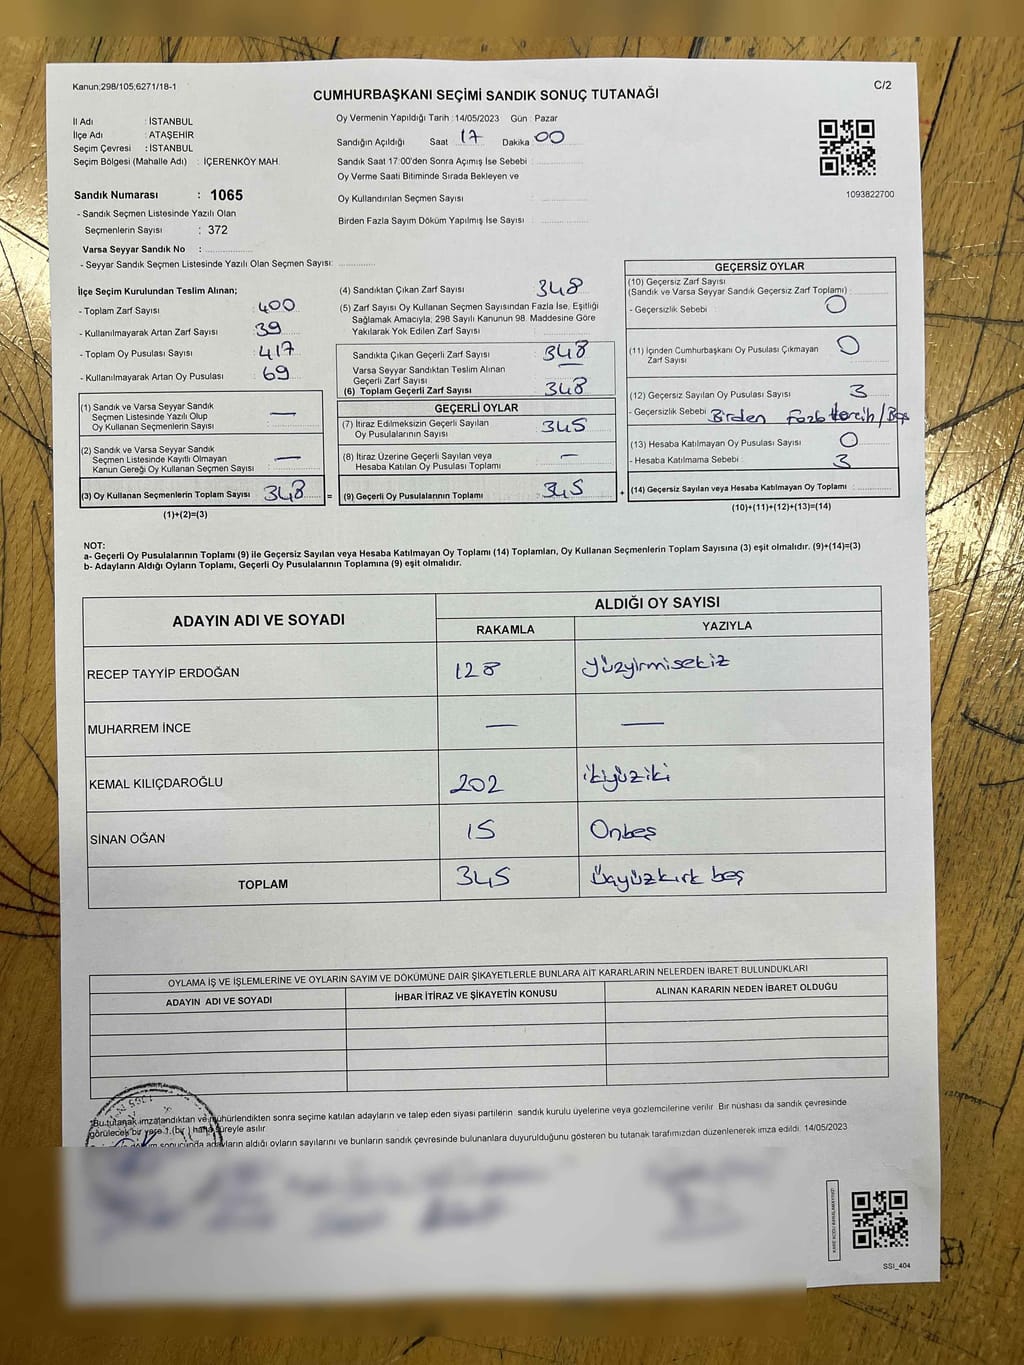 Kanun;298/105;6271/18-1
C/2
CUMHURBAŞKANI SEÇİMİ SANDIK SONUÇ TUTANAĞI
İl Adı : İSTANBUL
İlçe Adı : ATAŞEHİR
Seçim Çevresi : İSTANBUL
Seçim Bölgesi (Mahalle Adı) : İÇERENKÖY MAH.
Sandık Numarası : 1065
- Sandık Seçmen Listesinde Yazılı Olan
Seçmenlerin Sayısı : 372
Varsa Seyyar Sandık No :
- Seyyar Sandık Seçmen Listesinde Yazılı Olan Seçmen Sayısı:
Oy Vermenin Yapıldığı Tarih : 14/05/2023 Gün : Pazar
Sandığın Açıldığı Saat 17 Dakika 00
Sandık Saat 17:00'den Sonra Açımış İse Sebebi :
Oy Verme Saati Bitiminde Sırada Bekleyen ve
Oy Kullandırılan Seçmen Sayısı :
Birden Fazla Sayım Döküm Yapılmış İse Sayısı :
1093822700
İlçe Seçim Kurulundan Teslim Alınan;
- Toplam Zarf Sayısı : 400
- Kullanılmayarak Artan Zarf Sayısı : 39
- Toplam Oy Pusulası Sayısı : 417
- Kullanılmayarak Artan Oy Pusulası : 69
(1) Sandık ve Varsa Seyyar Sandık
Seçmen Listesinde Yazılı Olup
Oy Kullanan Seçmenlerin Sayısı : —
(2) Sandık ve Varsa Seyyar Sandık
Seçmen Listesinde Kayıtlı Olmayan
Kanun Gereği Oy Kullanan Seçmen Sayısı : —
(3) Oy Kullanan Seçmenlerin Toplam Sayısı 348 =
(1)+(2)=(3)
(4) Sandıktan Çıkan Zarf Sayısı 348
(5) Zarf Sayısı Oy Kullanan Seçmen Sayısından Fazla İse, Eşitliği
Sağlamak Amacıyla; 298 Sayılı Kanunun 98. Maddesine Göre
Yakılarak Yok Edilen Zarf Sayısı :
Sandıkta Çıkan Geçerli Zarf Sayısı : 348
Varsa Seyyar Sandıktan Teslim Alınan
Geçerli Zarf Sayısı : —
(6) Toplam Geçerli Zarf Sayısı : 348
GEÇERLİ OYLAR
(7) İtiraz Edilmeksizin Geçerli Sayılan
Oy Pusulalarının Sayısı : 345
(8) İtiraz Üzerine Geçerli Sayılan veya
Hesaba Katılan Oy Pusulası Toplamı : —
(9) Geçerli Oy Pusulalarının Toplamı : 345 +
GEÇERSİZ OYLAR
(10) Geçersiz Zarf Sayısı
(Sandık ve Varsa Seyyar Sandık Geçersiz Zarf Toplamı) :
- Geçersizlik Sebebi : 0
(11) İçinden Cumhurbaşkanı Oy Pusulası Çıkmayan 0
Zarf Sayısı :
(12) Geçersiz Sayılan Oy Pusulası Sayısı : 3
- Geçersizlik Sebebi : Birden Fazla tercih/Boş
(13) Hesaba Katılmayan Oy Pusulası Sayısı : 0
- Hesaba Katılmama Sebebi : 3
(14) Geçersiz Sayılan veya Hesaba Katılmayan Oy Toplamı :
(10)+(11)+(12)+(13)=(14)
NOT:
a- Geçerli Oy Pusulalarının Toplamı (9) ile Geçersiz Sayılan veya Hesaba Katılmayan Oy Toplamı (14) Toplamları, Oy Kullanan Seçmenlerin Toplam Sayısına (3) eşit olmalıdır. (9)+(14)=(3)
b- Adayların Aldığı Oyların Toplamı, Geçerli Oy Pusulalarının Toplamına (9) eşit olmalıdır.
ADAYIN ADI VE SOYADI
ALDIĞI OY SAYISI
RAKAMLA YAZIYLA
RECEP TAYYİP ERDOĞAN 128 yüzyirmisekiz
MUHARREM İNCE — —
KEMAL KILIÇDAROĞLU 202 ikiyüziki
SİNAN OĞAN 15 Onbeş
TOPLAM 345 üçyüzkırk beş
OYLAMA İŞ VE İŞLEMLERİNE VE OYLARIN SAYIM VE DÖKÜMÜNE DAİR ŞİKAYETLERLE BUNLARA AİT KARARLARIN NELERDEN İBARET BULUNDUKLARI
ADAYIN ADI VE SOYADI İHBAR İTİRAZ VE ŞİKAYETİN KONUSU ALINAN KARARIN NEDEN İBARET OLDUĞU
Bu tutanak imzalandıktan ve mühürlendikten sonra seçime katılan adayların ve talep eden siyasi partilerin sandık kurulu üyelerine veya gözlemcilerine verilir. Bir nüshası da sandık çevresinde
görülecek bir yere 1 (bir) hafta süreyle asılır.
adayların aldığı oyların sayılarını ve bunların sandık çevresinde bulunanlara duyurulduğunu gösteren bu tutanak tarafımızdan düzenlenerek imza edildi. 14/05/2023
SSI_404